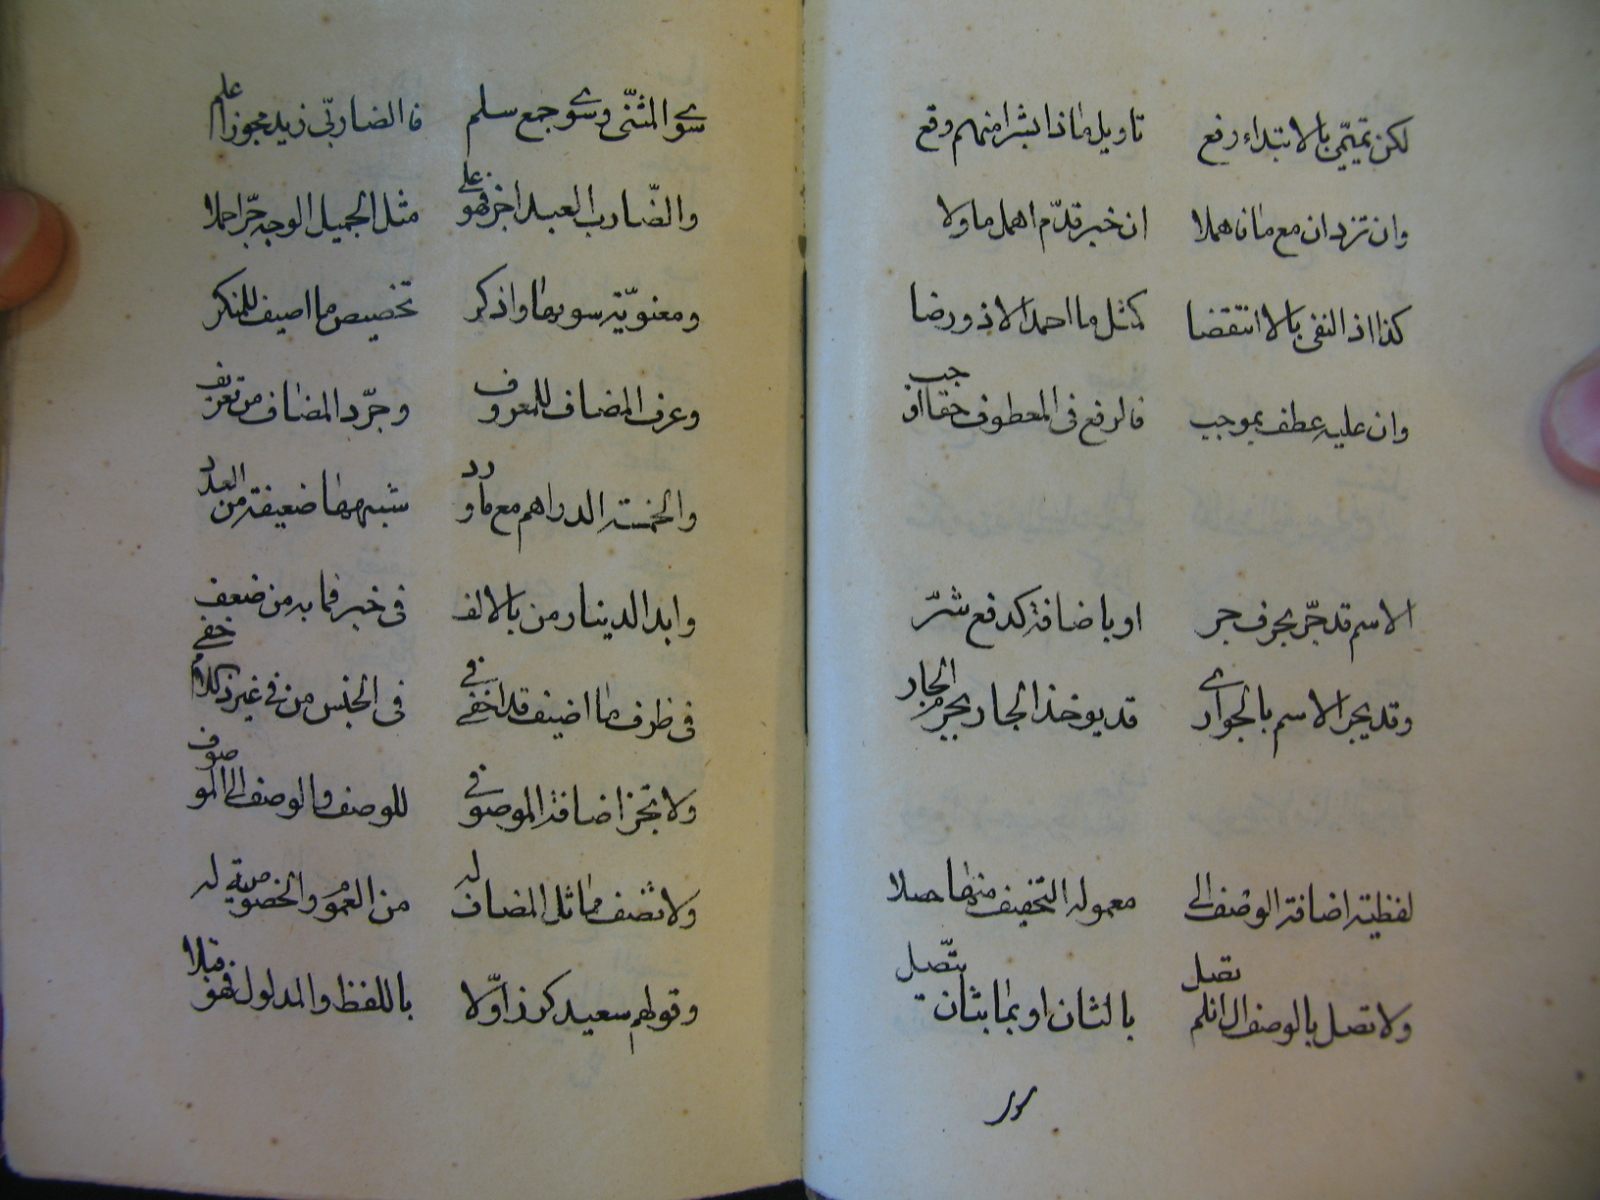 لكن تميمي بالابتداء رفع تاويل ماذا بشرا منهم وقع
وان تزد ان مع ما فاهملا ان خبر قدّم اهمل ما ولا
كذا اذ النفى بالا انتقضا كمثل ما احمد الا ذو رضا
وان عليه عطف بموجب فالرفع فى المعطوف حقا اوجب
الاسم قد جرّ بحرف جر او باضافة كدفع شرّ
وقد يجر الاسم بالجوار قد يوخذ الجار بجرم الجار
لفظية اضافة الوصف الى معموله التخفيف منها حصلا
ولا تصل بالوصف ال ان لم تصل بالثان او بما بثان يتّصل
سوى المثنّى وسوى جمع سلم فالضاربي زيد مجوزا علم
والضّارب العبد اجز فهو على مثل الجميل الوجه جرّ احملا
ومعنويّة سويها واذكر تخصيص ما اضيف للمنكر
وعرف المضاف للمعروف وجرّد المضاف من تعريف
والخمسة الدراهم مع ما ورد شبهها ضعيفة من العدد
وابد الدينار من بالالف فى خبر فما به من ضعف
فى ظرف ما اضيف قد اخفى فى الجنس من فى غير ذ لام خفى
ولا تجز اضافة الموصوف للوصف والوصف الى الموصوف
ولا تضف مماثل المضاف له من العموم والخصوصية له
وقولهم سعيد كرز اوّلا باللفظ والمدلول فهو قبلا